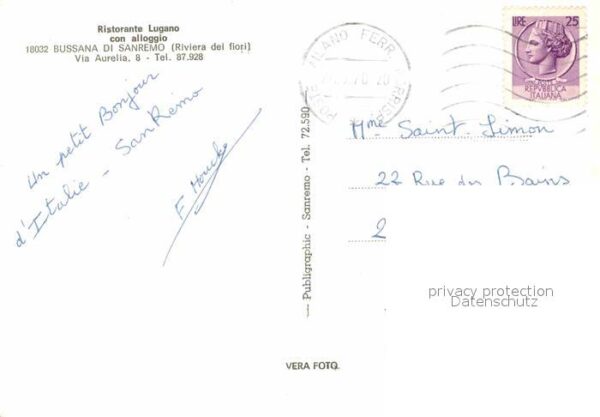 Ristorante Lugano
con alloggio
18032 BUSSANA DI SANREMO (Riviera dei fiori)
Via Aurelia, 8 - Tel. 87.928
Un petit Bonjour
d'Italie - San Remo
MILANO FERR.
POSTE
LIRE 25
POSTE
REPVBBLICA
ITALIANA
Mme Saint-Simon
22 Rue des Bains
2
— Publigraphic - Sanremo - Tel. 72.590 —
privacy protection
Datenschutz
VERA FOTO